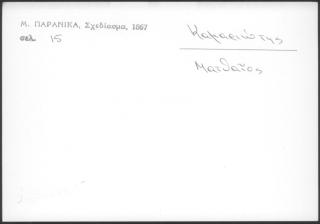 Μ. ΠΑΡΑΝΙΚΑ, Σχεδίασμα, 1867
σελ. 15
Καμαριώτης
Ματθαῖος